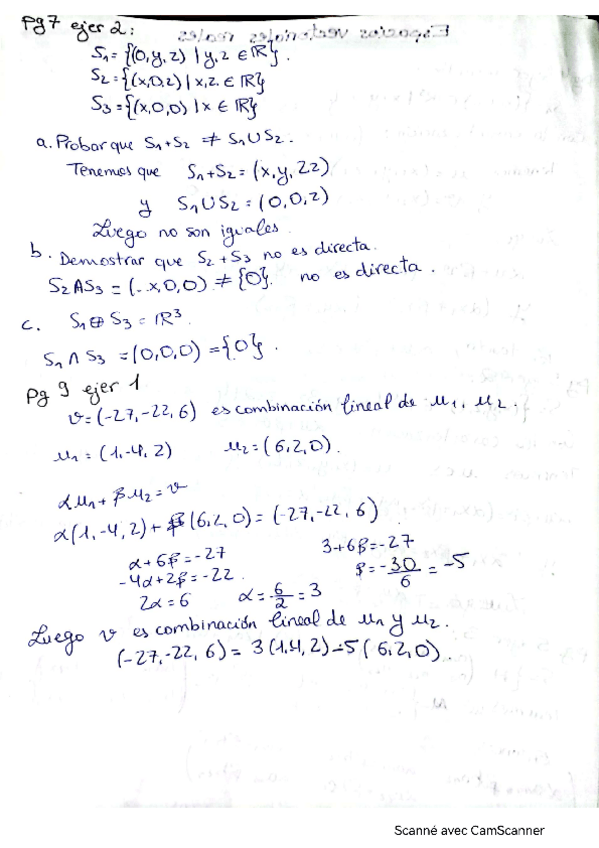 Pg 7 ejer 2:
S₁ = {(0, y, z) | y, z ∈ ℝ}.
S₂ = {(x, 0, z) | x, z ∈ ℝ}
S₃ = {(x, 0, 0) | x ∈ ℝ}
a. Probar que S₁+S₂ ≠ S₁∪S₂.
Tenemos que S₁+S₂ = (x, y, 2z)
y S₁∪S₂ = (0, 0, z)
Luego no son iguales.
b. Demostrar que S₂+S₃ no es directa.
S₂∧S₃ = (x, 0, 0) ≠ {0}. no es directa.
c. S₁ ⊕ S₃ = ℝ³.
S₁ ∩ S₃ = (0, 0, 0) = {0}.
Pg 9 ejer 1
v = (-27, -22, 6) es combinación lineal de μ₁, μ₂.
μ₁ = (1, -4, 2) μ₂ = (6, 2, 0).
αμ₁ + βμ₂ = v
α(1, -4, 2) + β(6, 2, 0) = (-27, -22, 6)
α + 6β = -27 3 + 6β = -27
-4α + 2β = -22 β = -30/6 = -5
2α = 6 α = 6/2 = 3
Luego v es combinación lineal de μ₁ y μ₂.
(-27, -22, 6) = 3(1, 4, 2) - 5(6, 2, 0).
Scanné avec CamScanner